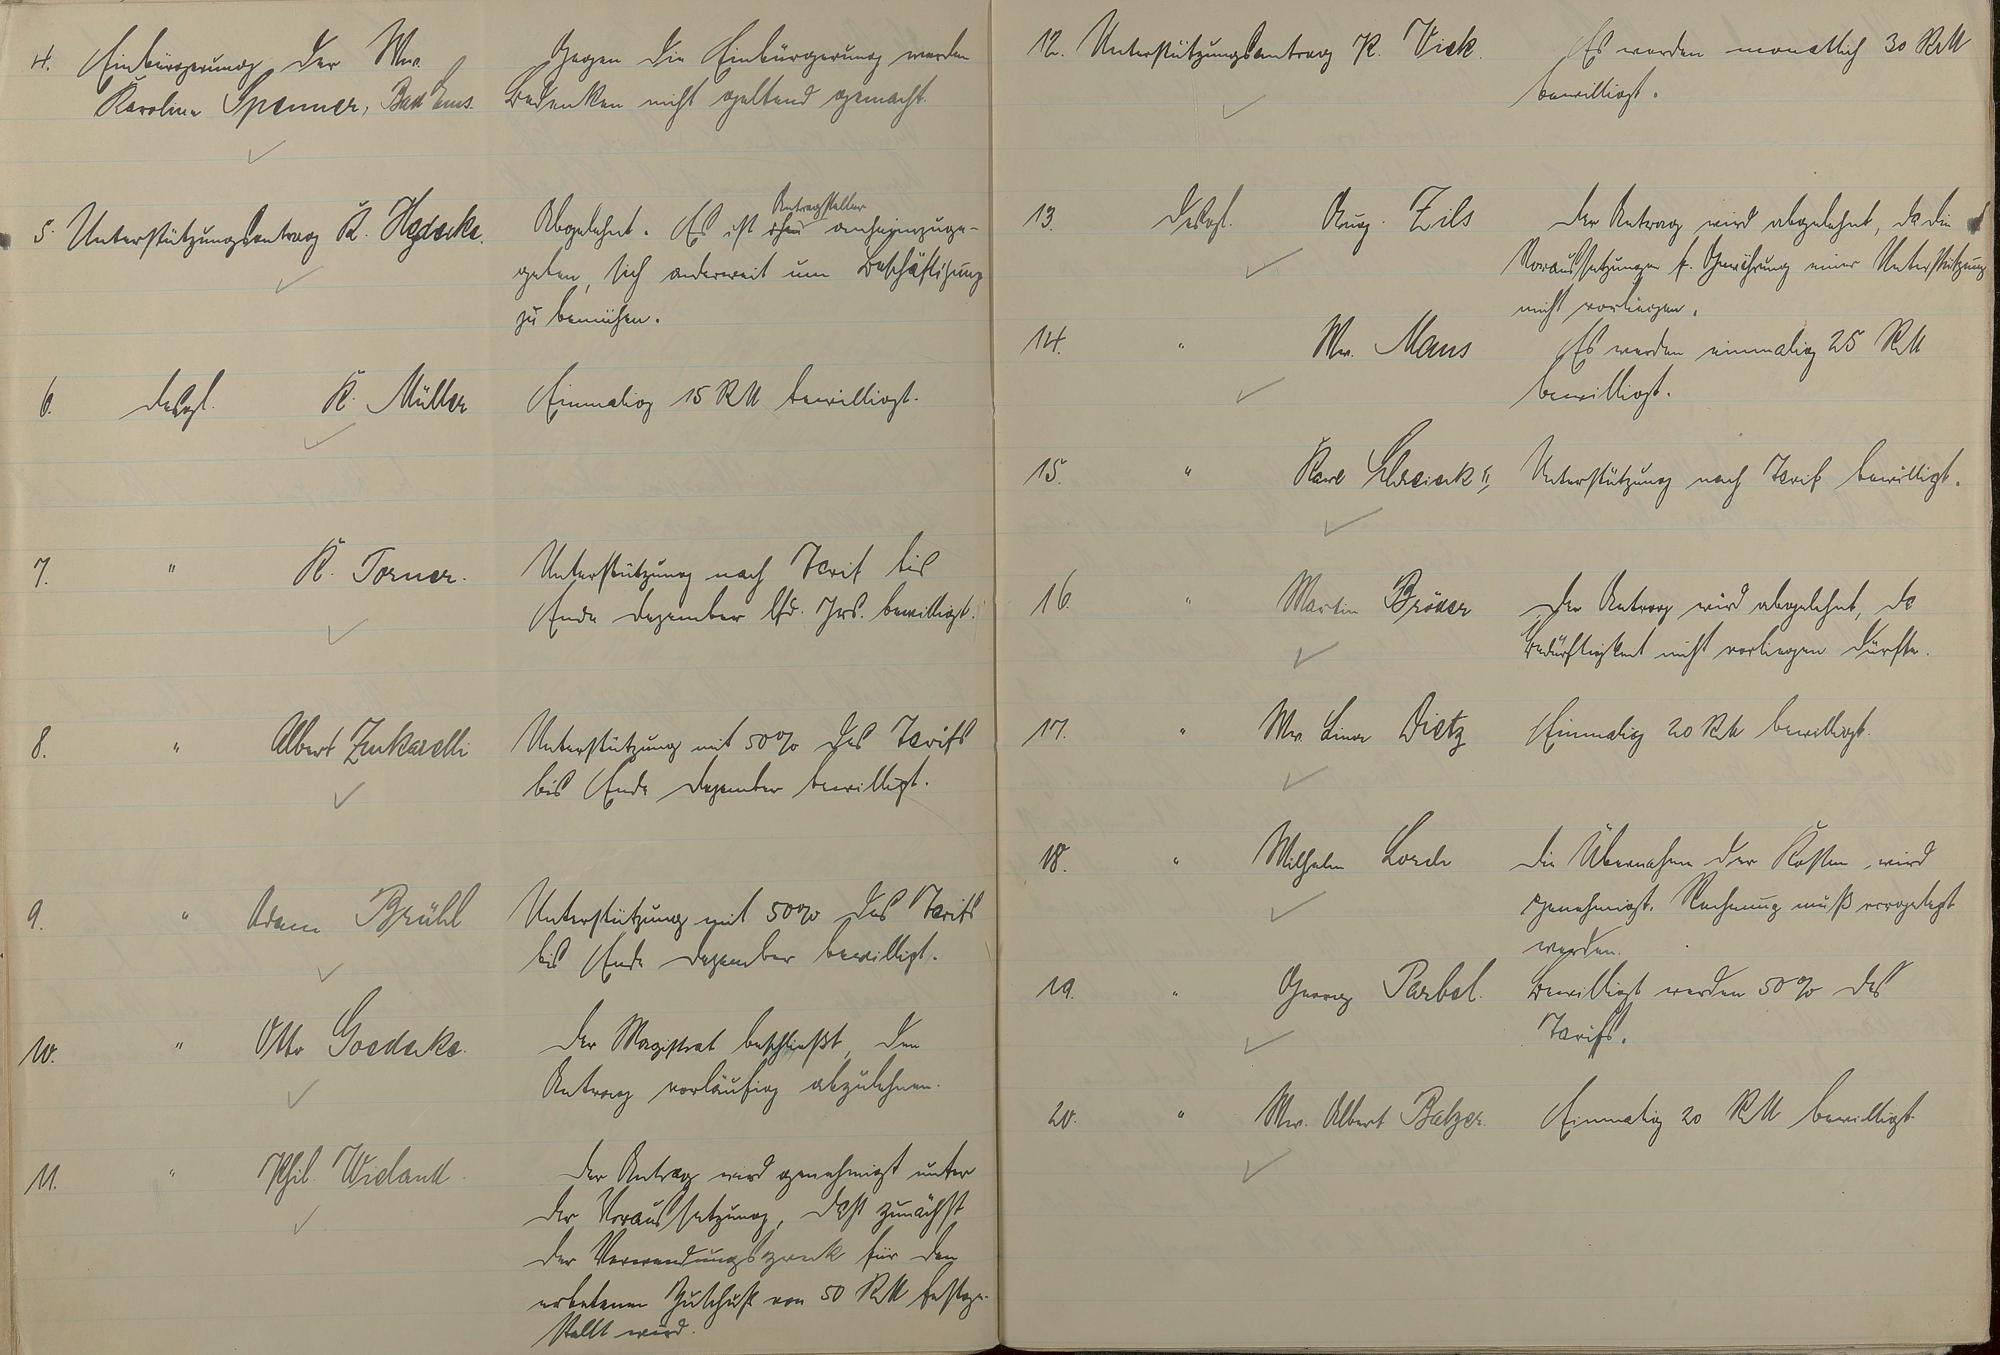 4. Einbürgerung der Ww. Gegen die Einbürgerung werden
Karoline Spenner, Bad Ems. Bedenken nicht geltend gemacht.
5. Unterstützungsantrag K. Hedecke. Abgelehnt. Es ist Antragsteller anheimzuge-
geben, sich anderweit um Beschäftigung
zu bemühen.
6. desgl. K. Müller Einmalig 15 RM bewilligt.
7. " K. Torner. Unterstützung nach Tarif bis
Ende Dezember lfd. Jrs. bewilligt.
8. " Albert Zukarelli Unterstützung mit 50% des Tarifs
bis Ende Dezember bewilligt.
9. " Adam Brühl Unterstützung mit 50% des Tarifs
bis Ende Dezember bewilligt.
10. " Otto Goedecke. Der Magistrat beschließt, den
Antrag vorläufig abzulehnen.
11. " Phil. Wieland. Der Antrag wird genehmigt unter
der Voraussetzung, daß zunächst
der Verwendungszweck für den
erbetenen Zuschuß von 50 RM festge-
stellt wird.
12. Unterstützungsantrag K. Vick. Es werden monatlich 30 RM
bewilligt.
13. desgl. Aug. Zils Der Antrag wird abgelehnt, da die
Voraussetzungen f. Gewährung einer Unterstützung
nicht vorliegen.
14. " Ww. Maus Es werden einmalig 25 RM
bewilligt.
15. " Karl II, Unterstützung nach Tarif bewilligt.
16. " Martin Bröder Der Antrag wird abgelehnt, da
Bedürftigkeit nicht vorliegen dürfte.
17. " Ww. Lina Dietz Einmalig 20 RM bewilligt.
18. " Wilhelm Lorch Die Übernahme der Kosten wird
genehmigt. Rechnung muß vorgelegt
werden.
19. " Georg Parbel. Bewilligt werden 50% des
Tarifs.
20. " Ww. Albert Balzer. Einmalig 20 RM bewilligt.